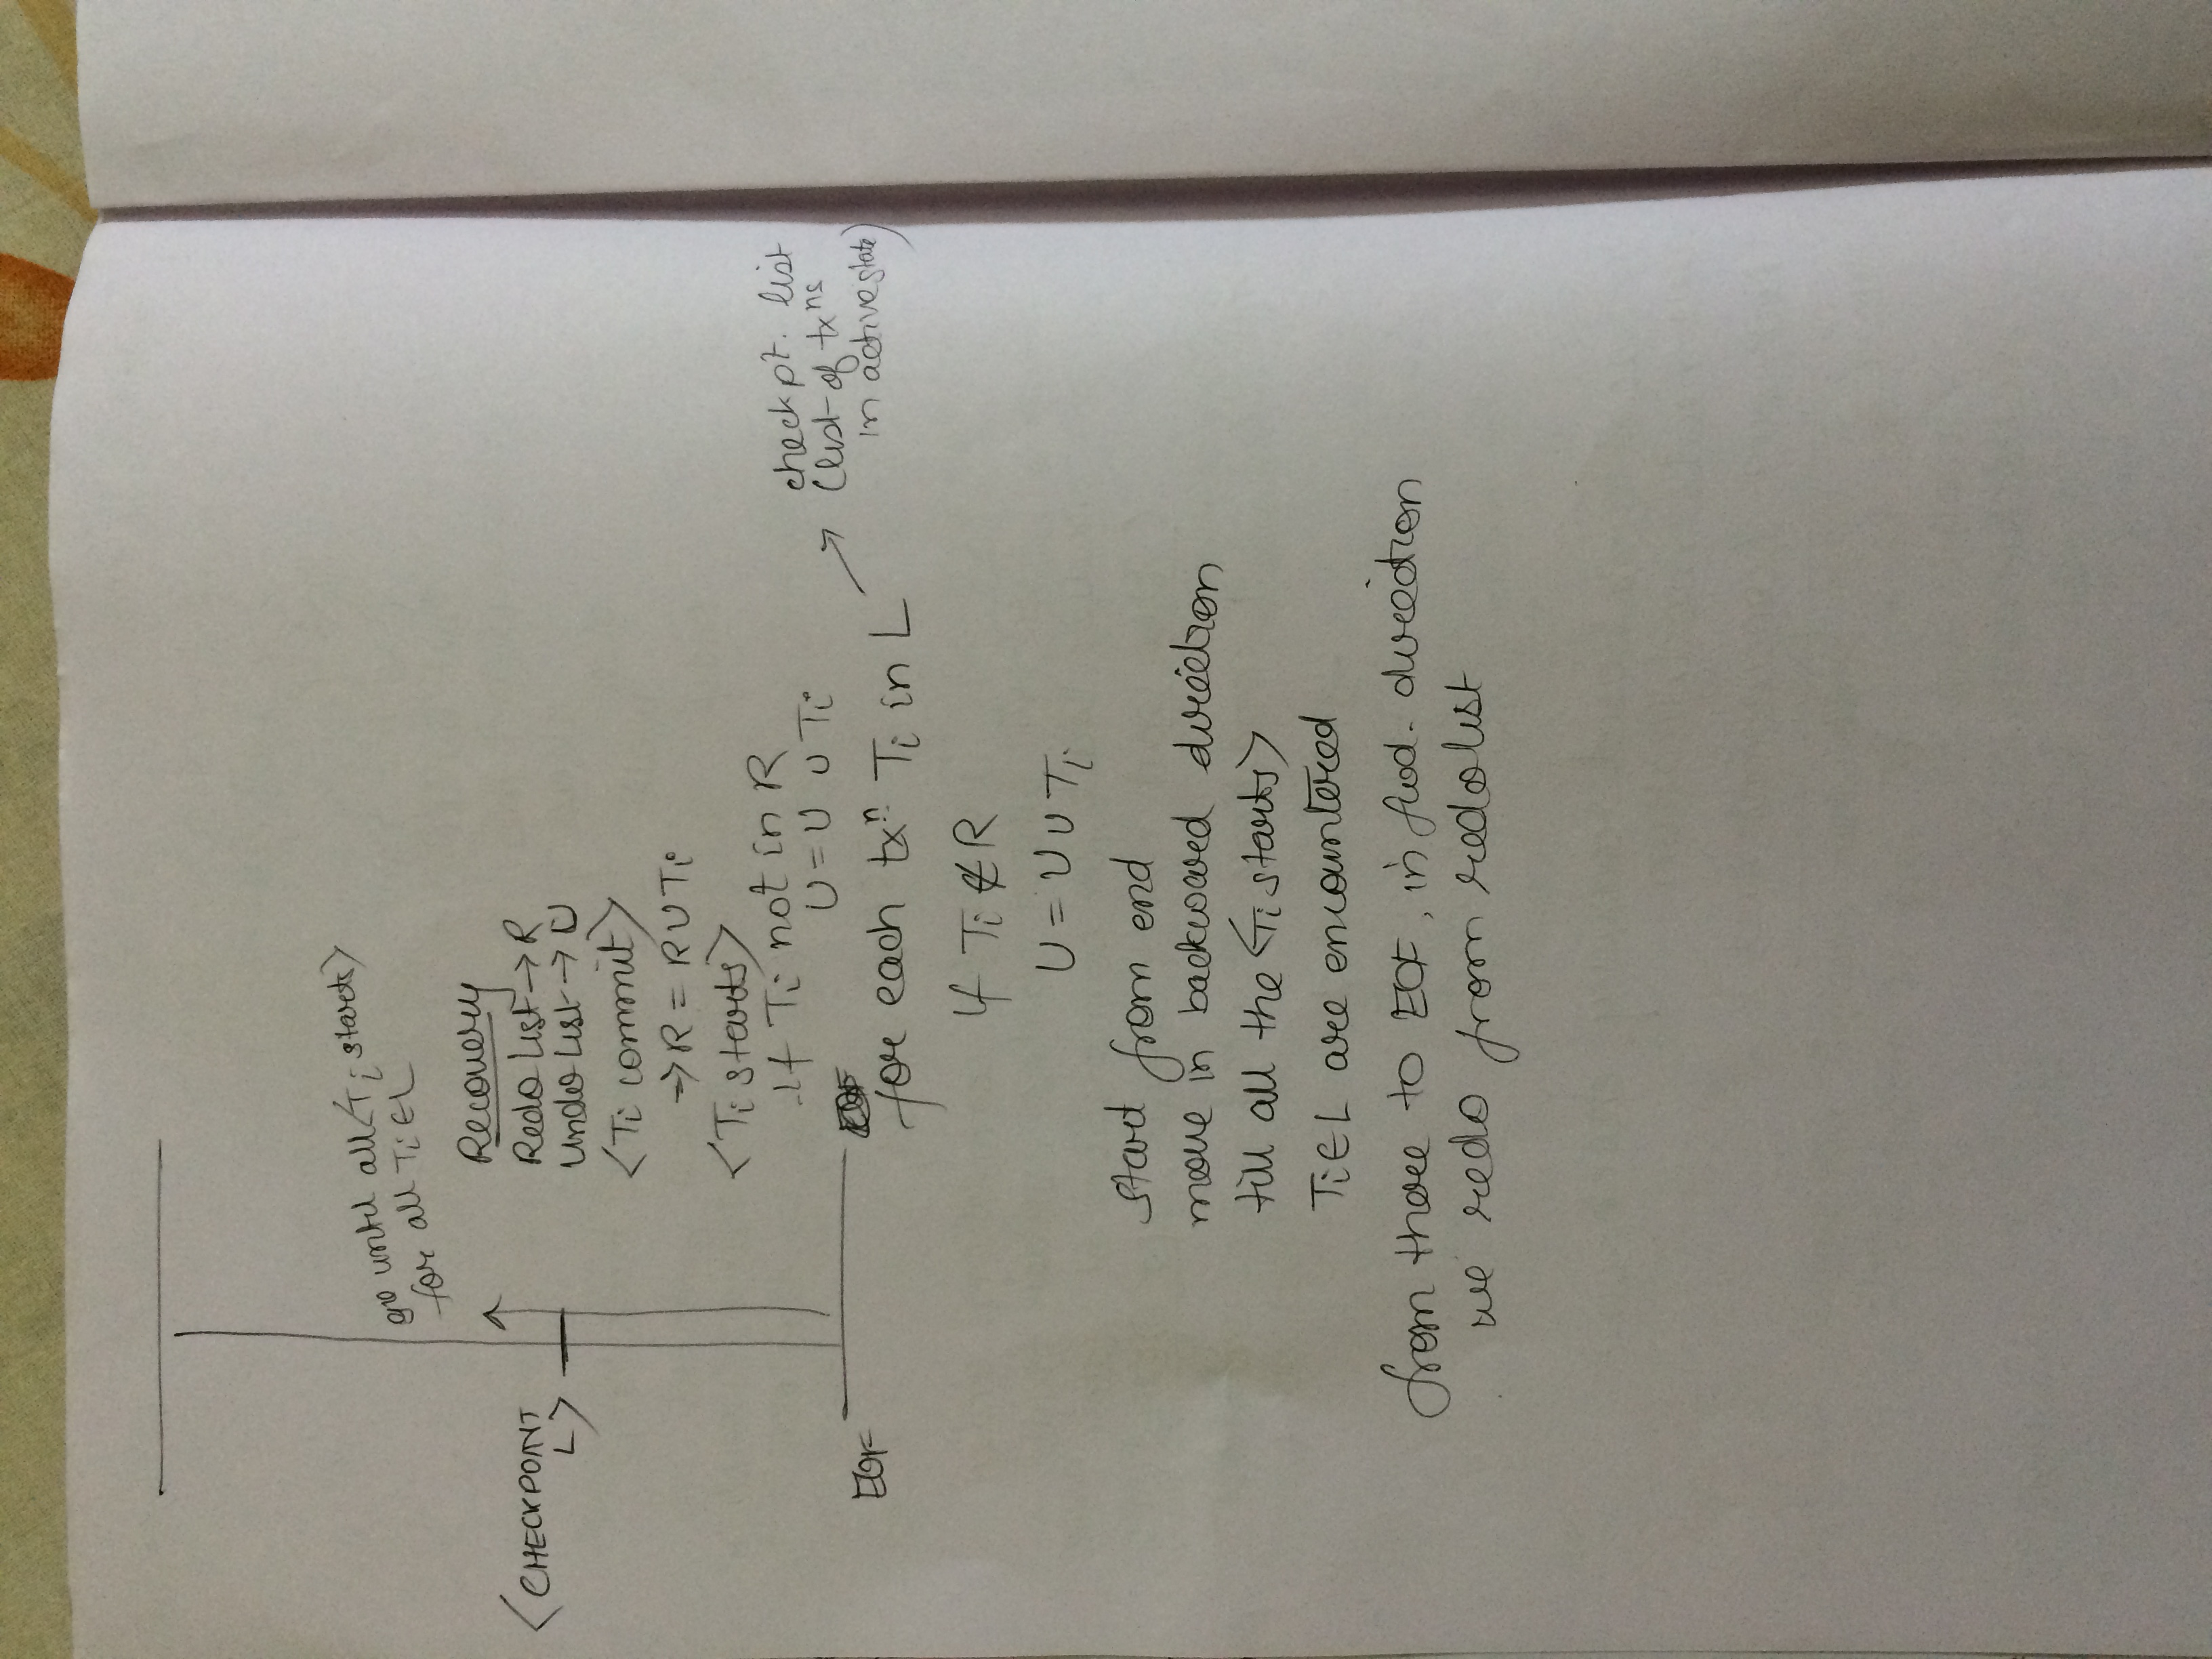 go until all <Ti starts>
for all Ti ∈ L
<CHECKPOINT
L>
Recovery
Redo List → R
Undo List → U
<Ti commit>
→ R = R ∪ Ti
<Ti starts>
If Ti not in R
U = U ∪ Ti
EOF
for each txⁿ Ti in L
checkpt. list
(list of txⁿˢ
in active state)
If Ti ∉ R
U = U ∪ Ti
start from end
move in backward direction
till all the <Ti starts>
Ti ∈ L are encountered
from there to EOF, in fwd. direction
we redo from redolist